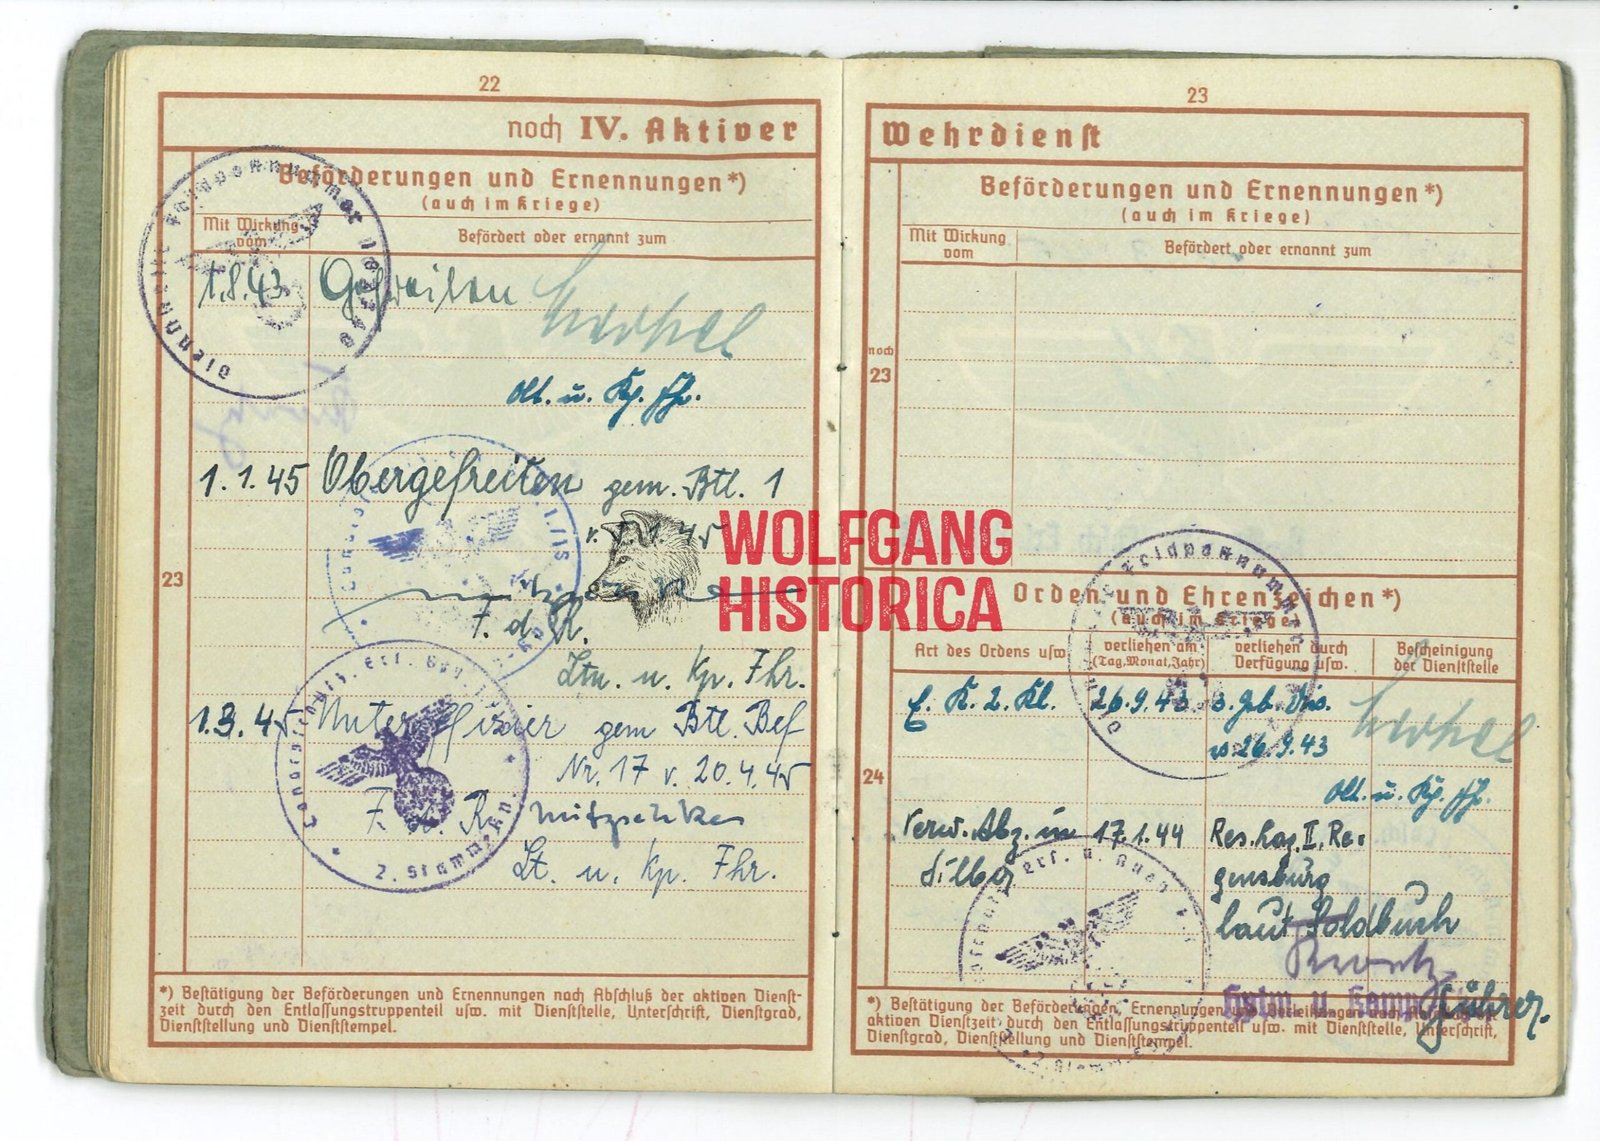 22
noch IV. Aktiver
Beförderungen und Ernennungen*)
(auch im Kriege)
Mit Wirkung vom
Befördert oder ernannt zum
1.8.43 Gefreiten
Olt. u. Kp. Fhr.
1.1.45 Obergefreiten gem. Btl. 1
F. d. R.
Ltn. u. Kp. Fhr.
1.3.45 Unteroffizier gem Btl. Bef
Nr. 17 v. 20.4.45
F. d. R.
Lt. u. Kp. Fhr.
23
*) Bestätigung der Beförderungen und Ernennungen nach Abschluß der aktiven Dienst-
zeit durch den Entlassungstruppenteil usw. mit Dienststelle, Unterschrift, Dienstgrad,
Dienststellung und Dienststempel.
Dienststelle Feldpostnummer
2. Stammkp.
WOLFGANG
HISTORICA
23
Wehrdienst
Beförderungen und Ernennungen*)
(auch im Kriege)
Mit Wirkung vom
Befördert oder ernannt zum
noch
23
Orden und Ehrenzeichen*)
(auch im Kriege)
Art des Ordens usw.
verliehen am
(Tag, Monat, Jahr)
verliehen durch
Verfügung usw.
Bescheinigung
der Dienststelle
E. K. 2. Kl. 26.9.43 3. Geb. Div.
v. 26.9.43
Olt. u. Kp. Fhr.
24
Verw. Abz. in 17.1.44 Res. Laz. II. Re-
Silber gensburg
laut Soldbuch
Führer.
*) Bestätigung der Beförderungen, Ernennungen und Verleihungen nach Abschluß der
aktiven Dienstzeit durch den Entlassungstruppenteil usw. mit Dienststelle, Unterschrift,
Dienstgrad, Dienststellung und Dienststempel.
Feldpostnummer